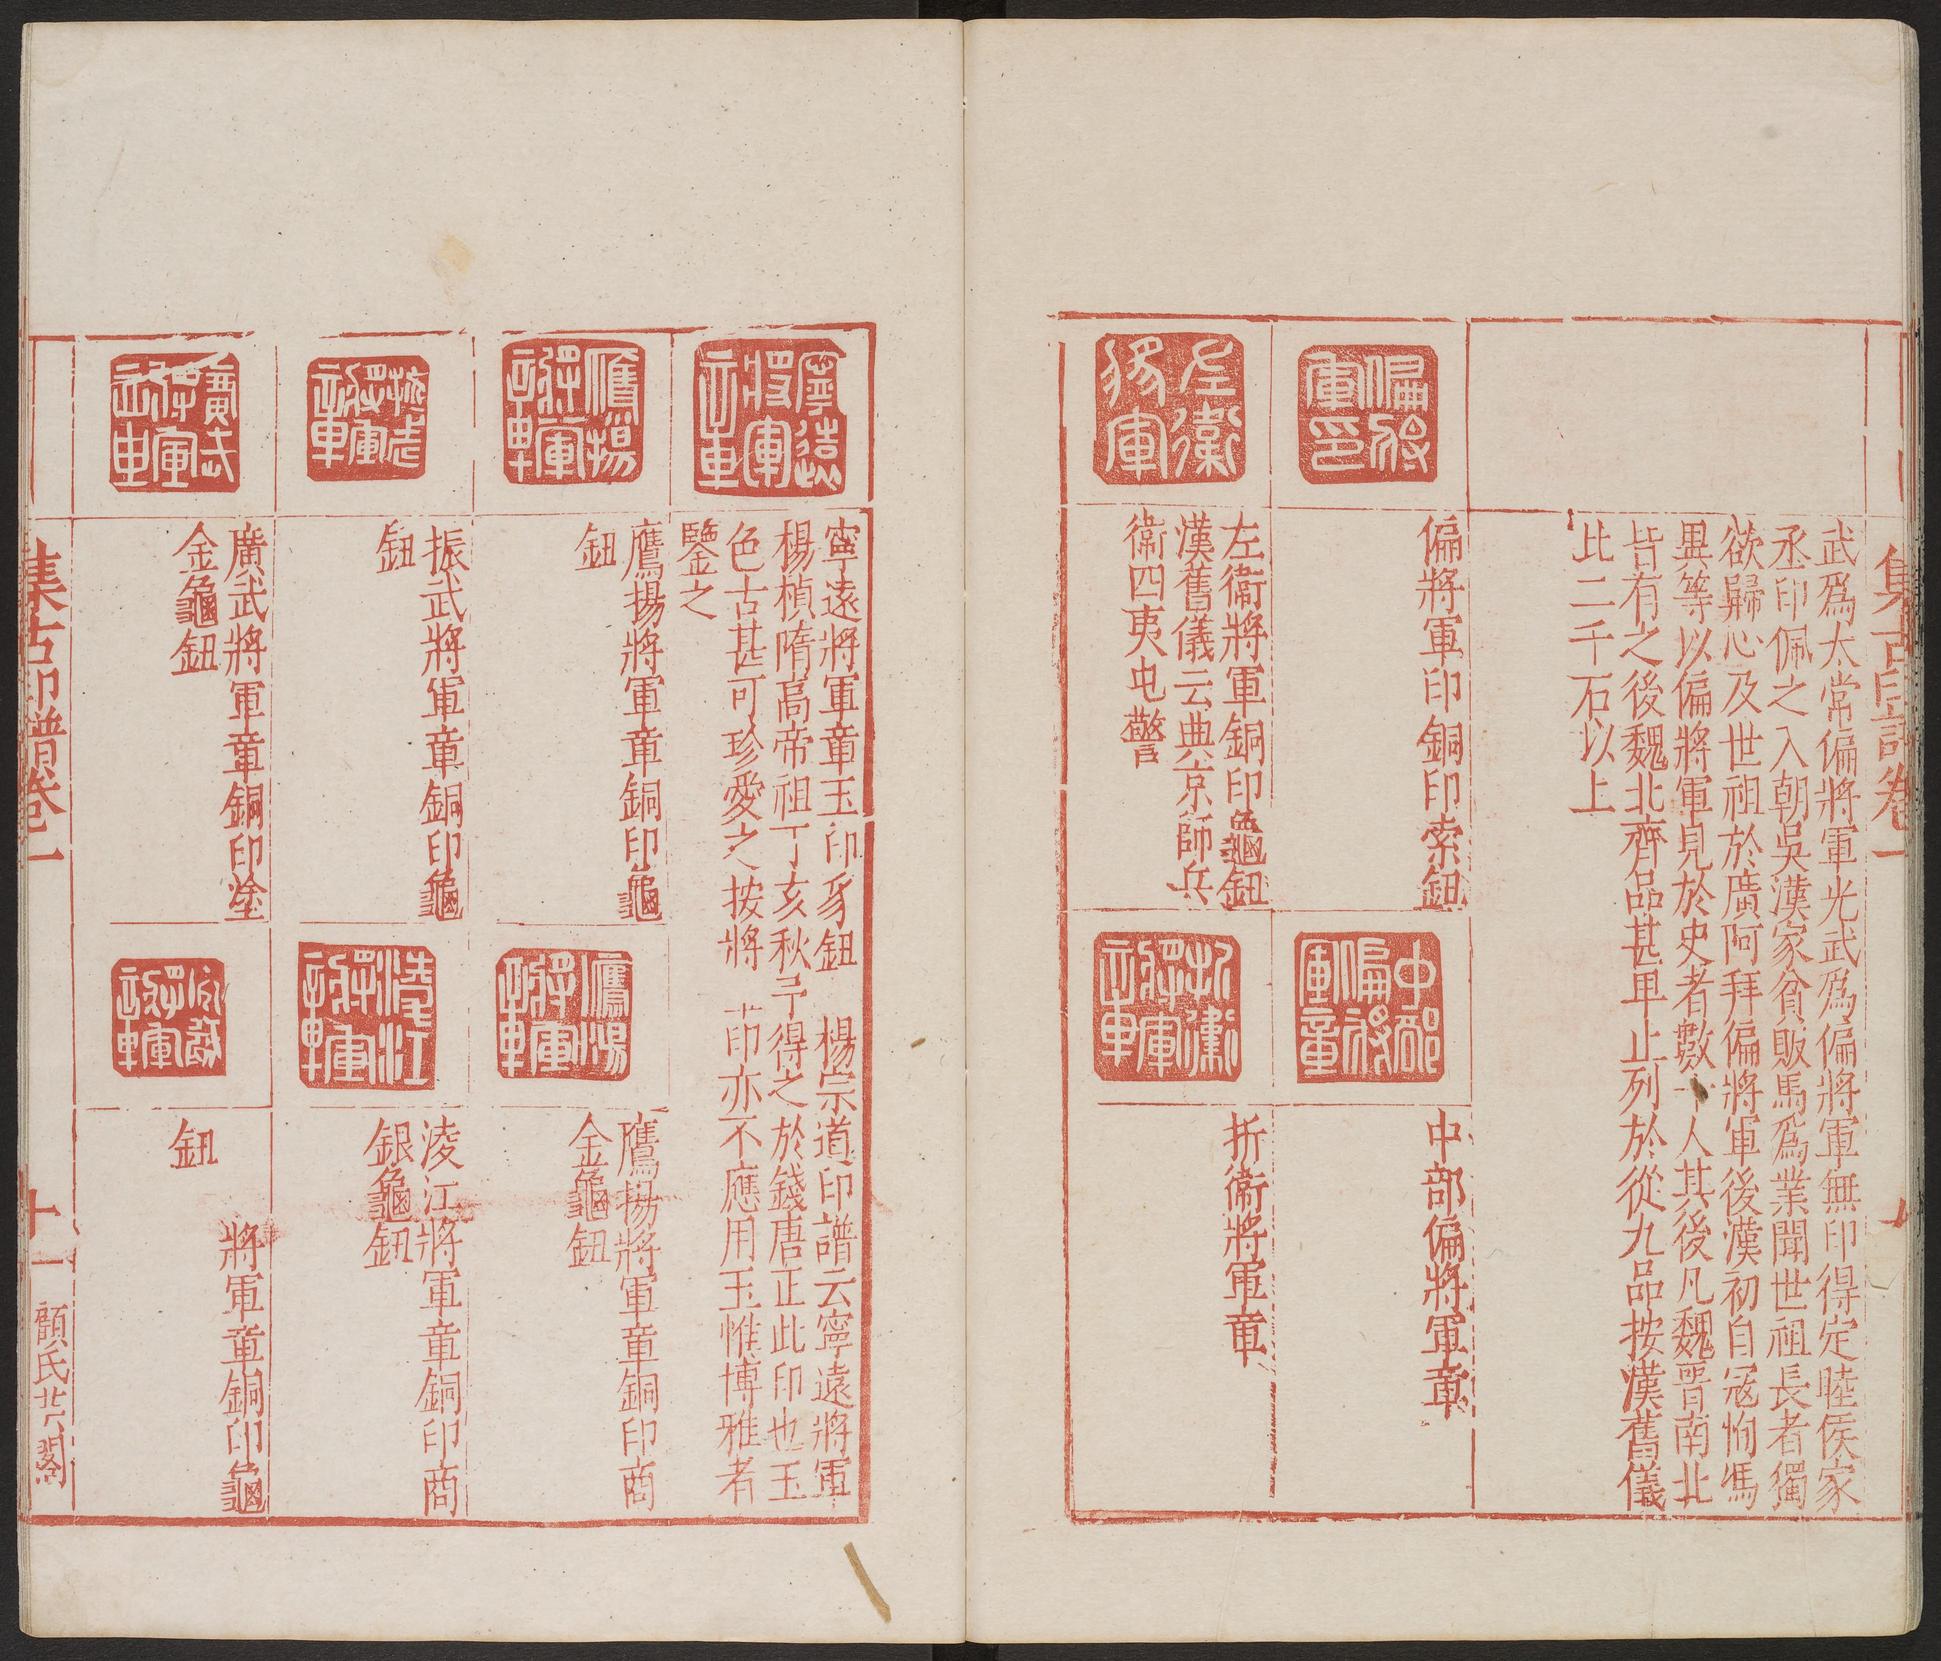 集古印譜卷一
武爲太常偏將軍光武爲偏將軍無印得定陸侯家
丞印佩之入朝吳漢家貧販馬爲業聞世祖長者獨
欲歸心及世祖於廣阿拜偏將軍後漢初自寇恂馮
異等以偏將軍見於史者數十人其後凡魏晉南北
皆有之後魏北齊品甚卑止列於從九品按漢舊儀
比二千石以上
偏將軍印
偏將軍印銅印索鈕
中部偏將軍章
中部偏將軍章
左衛將軍
左衛將軍銅印龜鈕
漢舊儀云典京師兵
衛四夷屯警
折衝將軍章
折衝將軍章
寧遠將軍章
寧遠將軍章玉印豸鈕 楊宗道印譜云寧遠將軍
楊楨隋高帝祖丁亥秋予得之於錢唐正此印也玉
色古甚可珍愛之按將 亦不應用玉惟博雅者
鑒之
鷹揚將軍章
鷹揚將軍章銅印龜
鈕
鷹揚將軍章
鷹揚將軍章銅印商
金龜鈕
振武將軍章銅印龜
鈕
淩江將軍章
淩江將軍章銅印商
銀龜鈕
廣武將軍章
廣武將軍章銅印塗
金龜鈕
將軍章
將軍章銅印龜
鈕
集古印譜卷一
十一
顧氏芸閣